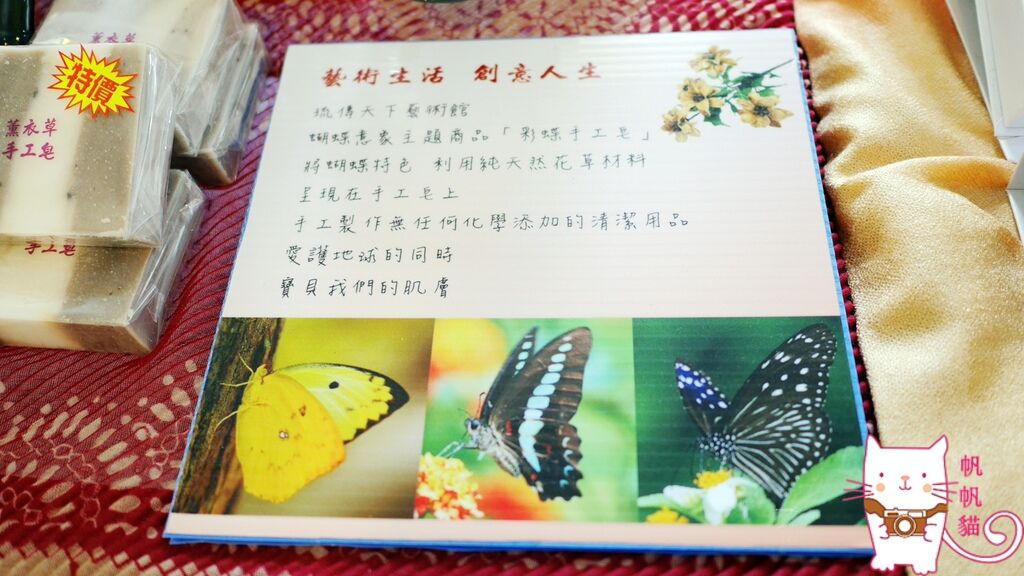 藝術生活 創意人生
琉傳天下藝術館
蝴蝶意象主題商品「彩蝶手工皂」
將蝴蝶特色 利用純天然花草材料
呈現在手工皂上
手工製作無任何化學添加的清潔用品
愛護地球的同時
寶貝我們的肌膚
薰衣草
特價
薰衣草
手工皂
手工皂
帆帆貓